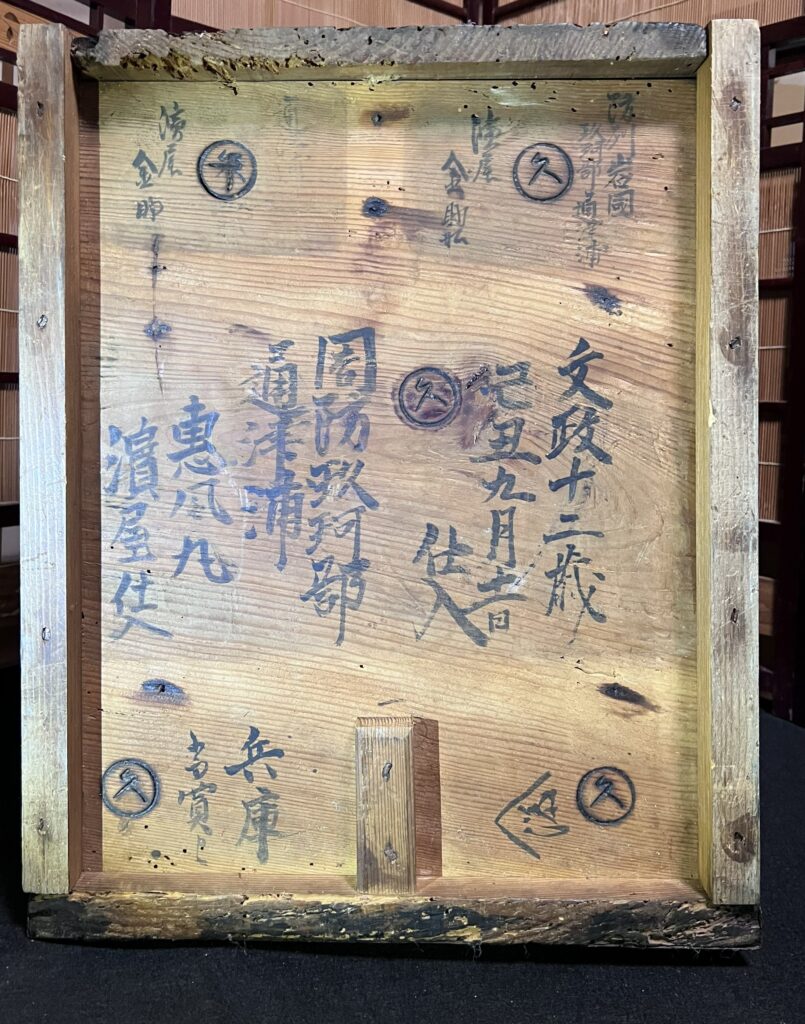 防州岩国
玖珂郡通津浦
久
濱屋
金助
濱屋
金助
文政十二歳
己丑九月吉日
仕入
久
周防玖珂郡
通津浦
惠風丸
濱屋仕入
久
兵庫
久